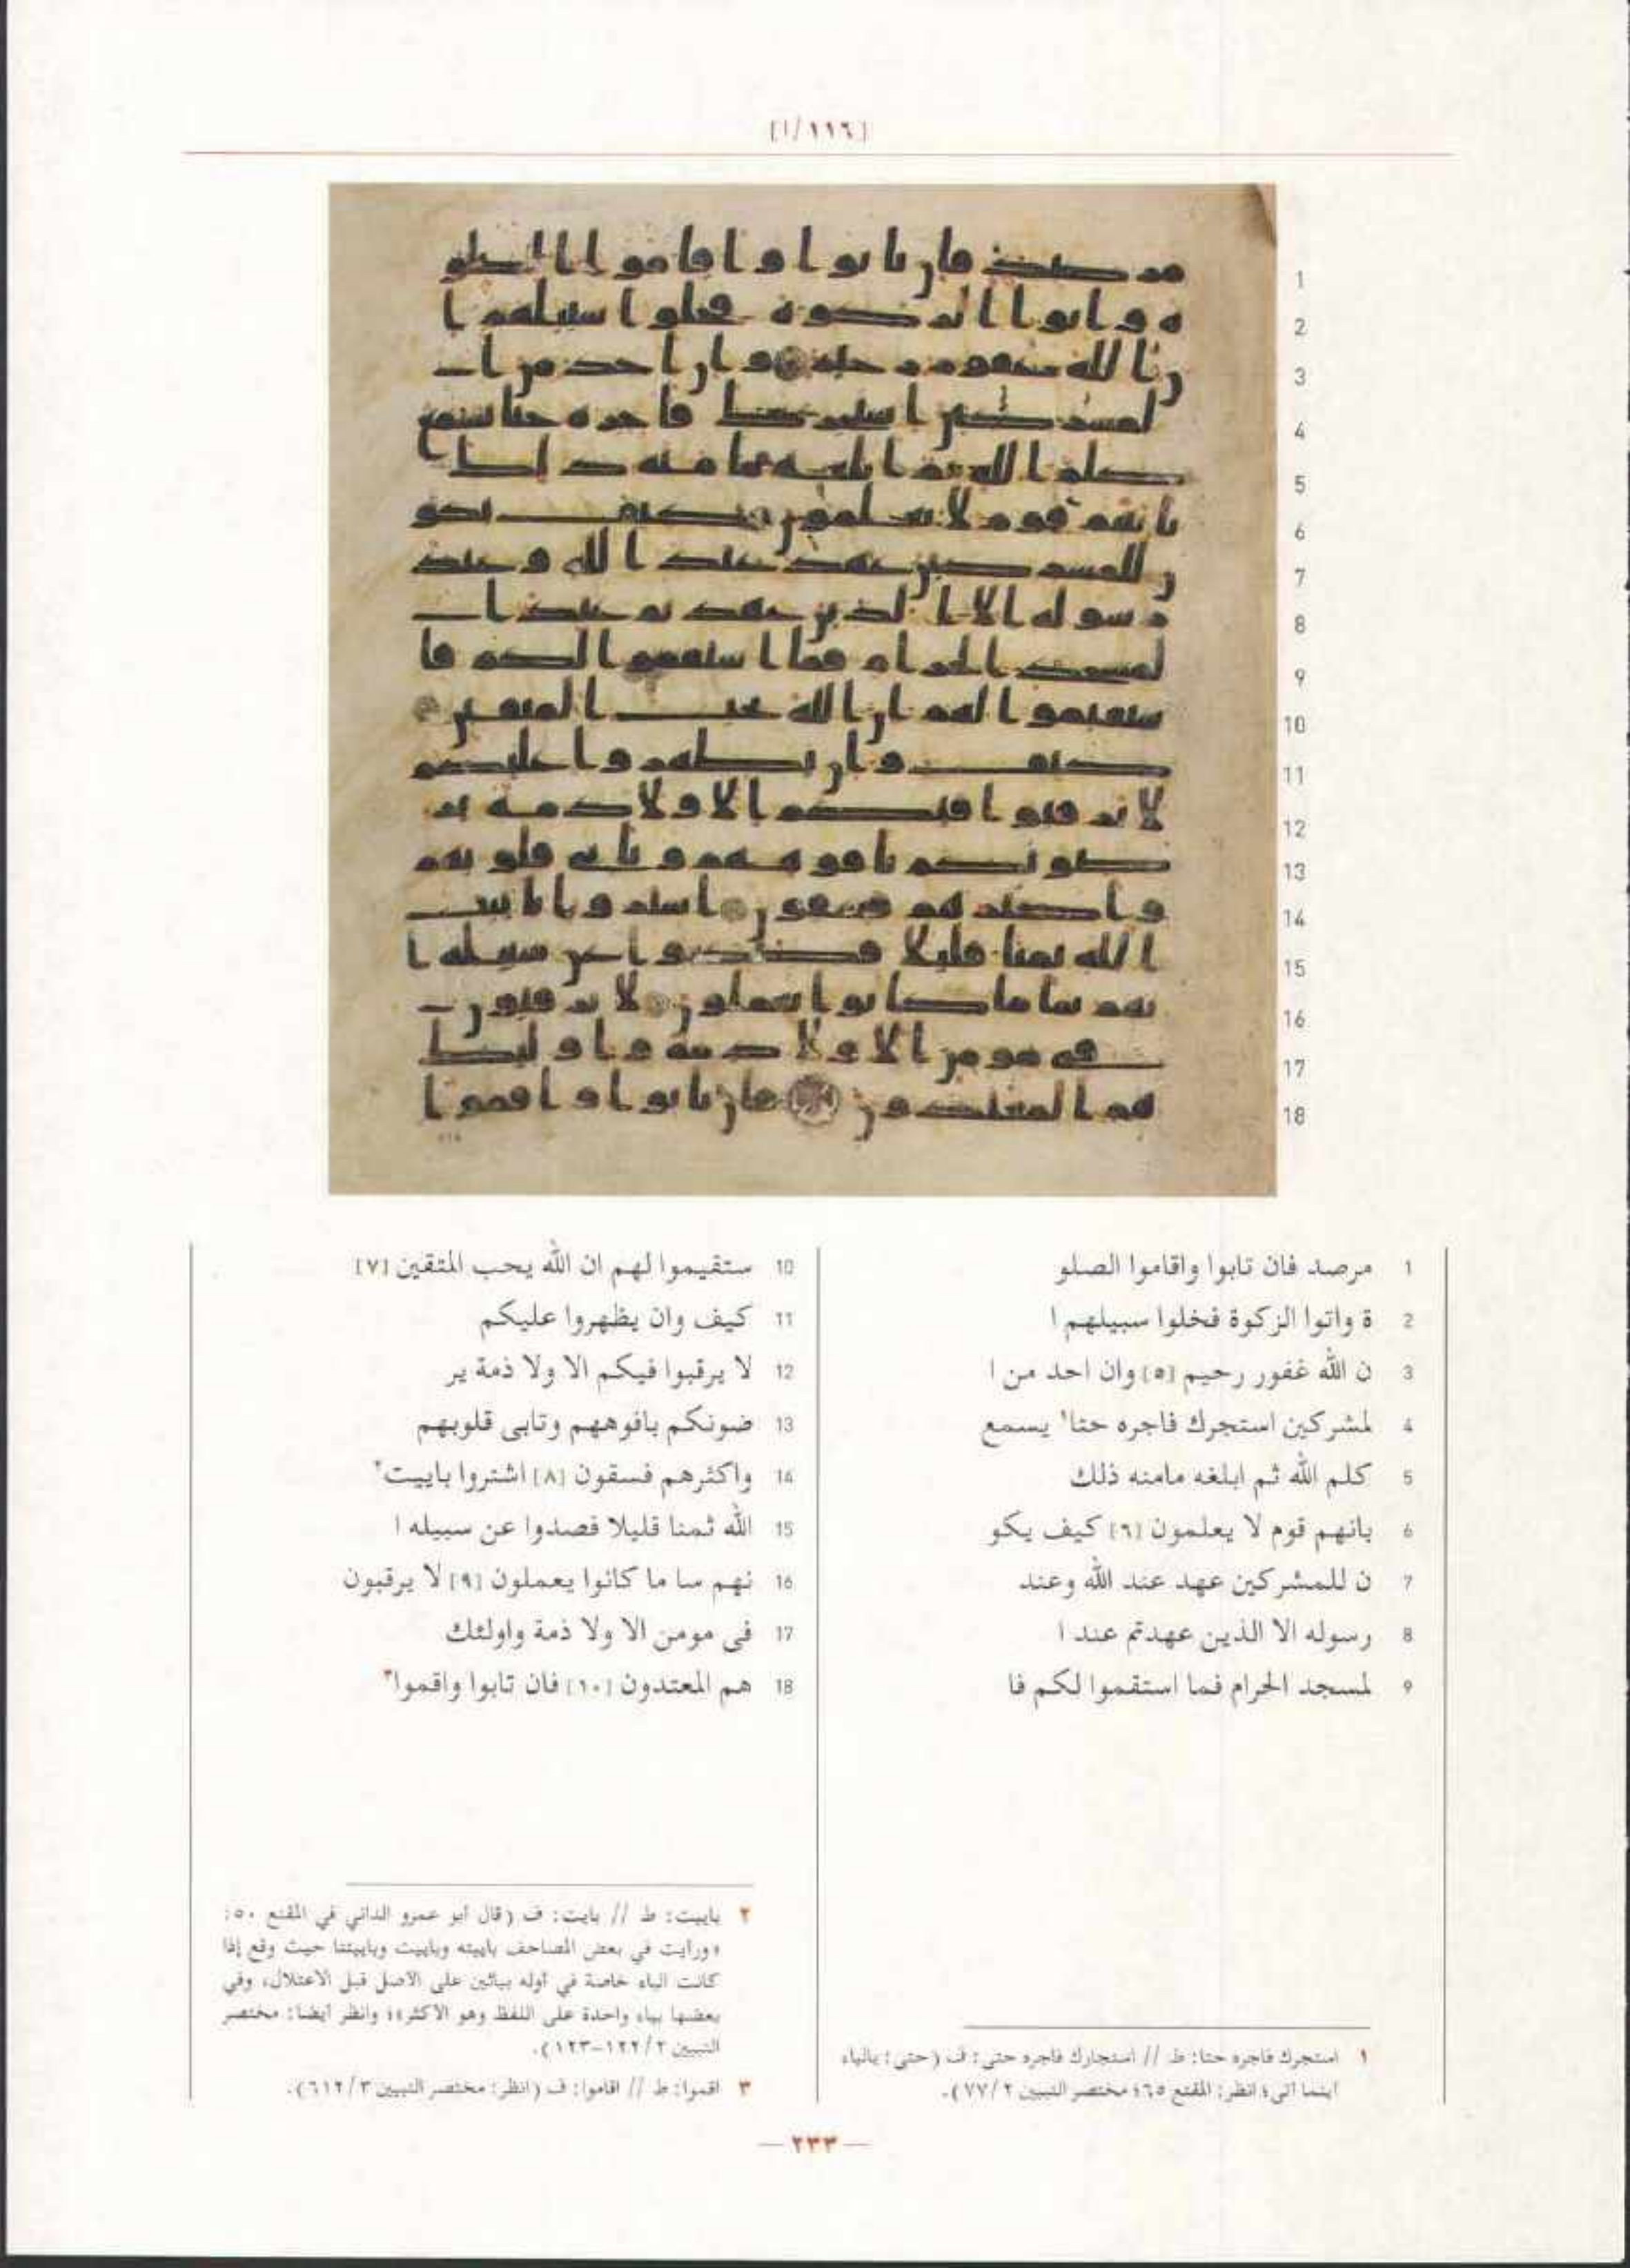 [١١٦/ا]
1 مرصد فان تابوا واقاموا الصلو
2 ة واتوا الزكوة فخلوا سبيلهم ا
3 ن الله غفور رحيم [٥] وان احد من ا
4 لمشركين استجرك فاجره حتا١ يسمع
5 كلم الله ثم ابلغه مامنه ذلك
6 بانهم قوم لا يعلمون [٦] كيف يكو
7 ن للمشركين عهد عند الله وعند
8 رسوله الا الذين عهدتم عند ا
9 لمسجد الحرام فما استقموا لكم فا
10 ستقيموا لهم ان الله يحب المتقين [٧]
11 كيف وان يظهروا عليكم
12 لا يرقبوا فيكم الا ولا ذمة ير
13 ضونكم بافوههم وتابى قلوبهم
14 واكثرهم فسقون [٨] اشتروا باييت٢
15 الله ثمنا قليلا فصدوا عن سبيله ا
16 نهم سا ما كانوا يعملون [٩] لا يرقبون
17 فى مومن الا ولا ذمة واولئك
18 هم المعتدون [١٠] فان تابوا واقموا٣
١ استجرك فاجره حتا: ط // استجارك فاجره حتى: ف (حتى: بالياء
اينما اتى؛ انظر: المقنع ٦٥؛ مختصر التبيين ٧٧/٢).
٢ باييت: ط // بايت: ف (قال أبو عمرو الداني في المقنع ٥٠:
«ورأيت في بعض المصاحف باييته وباييت وباييتنا حيث وقع إذا
كانت الباء خاصة في أوله بيائين على الأصل قبل الاعتلال، وفي
بعضها بياء واحدة على اللفظ وهو الأكثر»؛ وانظر أيضا: مختصر
التبيين ١٢٢/٢-١٢٣).
٣ اقموا: ط // اقاموا: ف (انظر: مختصر التبيين ٦١٢/٣).
— ٢٣٣ —